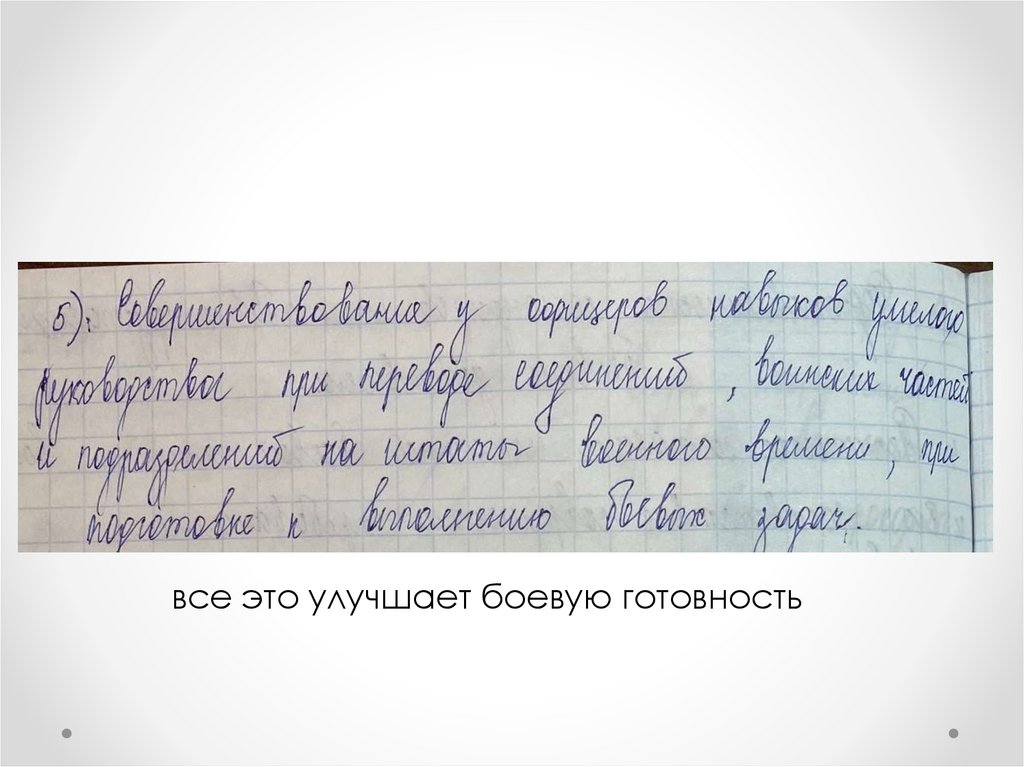 5). Совершенствование у офицеров навыков умелого
руководства при переводе соединений, воинских частей
и подразделений на штаты военного времени, при
подготовке к выполнению боевых задач.
все это улучшает боевую готовность